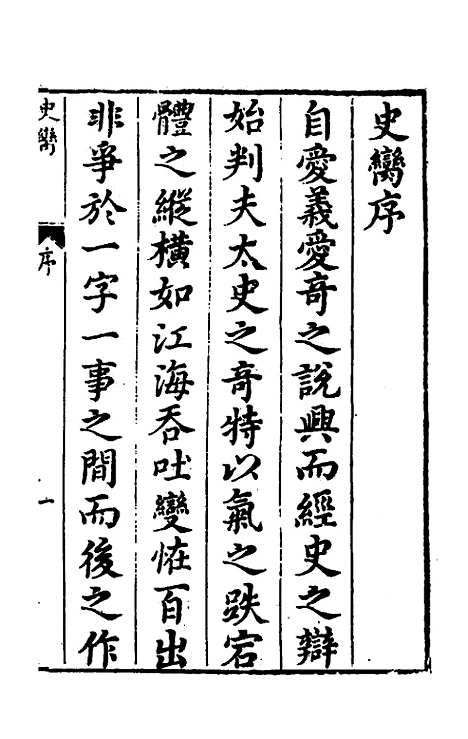 史臠序
自愛義愛竒之說興而經史之辯
始判夫太史之竒特以氣之跌宕
體之縱橫如江海吞吐變恠百出
非爭於一字一事之間而後之作
史臠
序
一